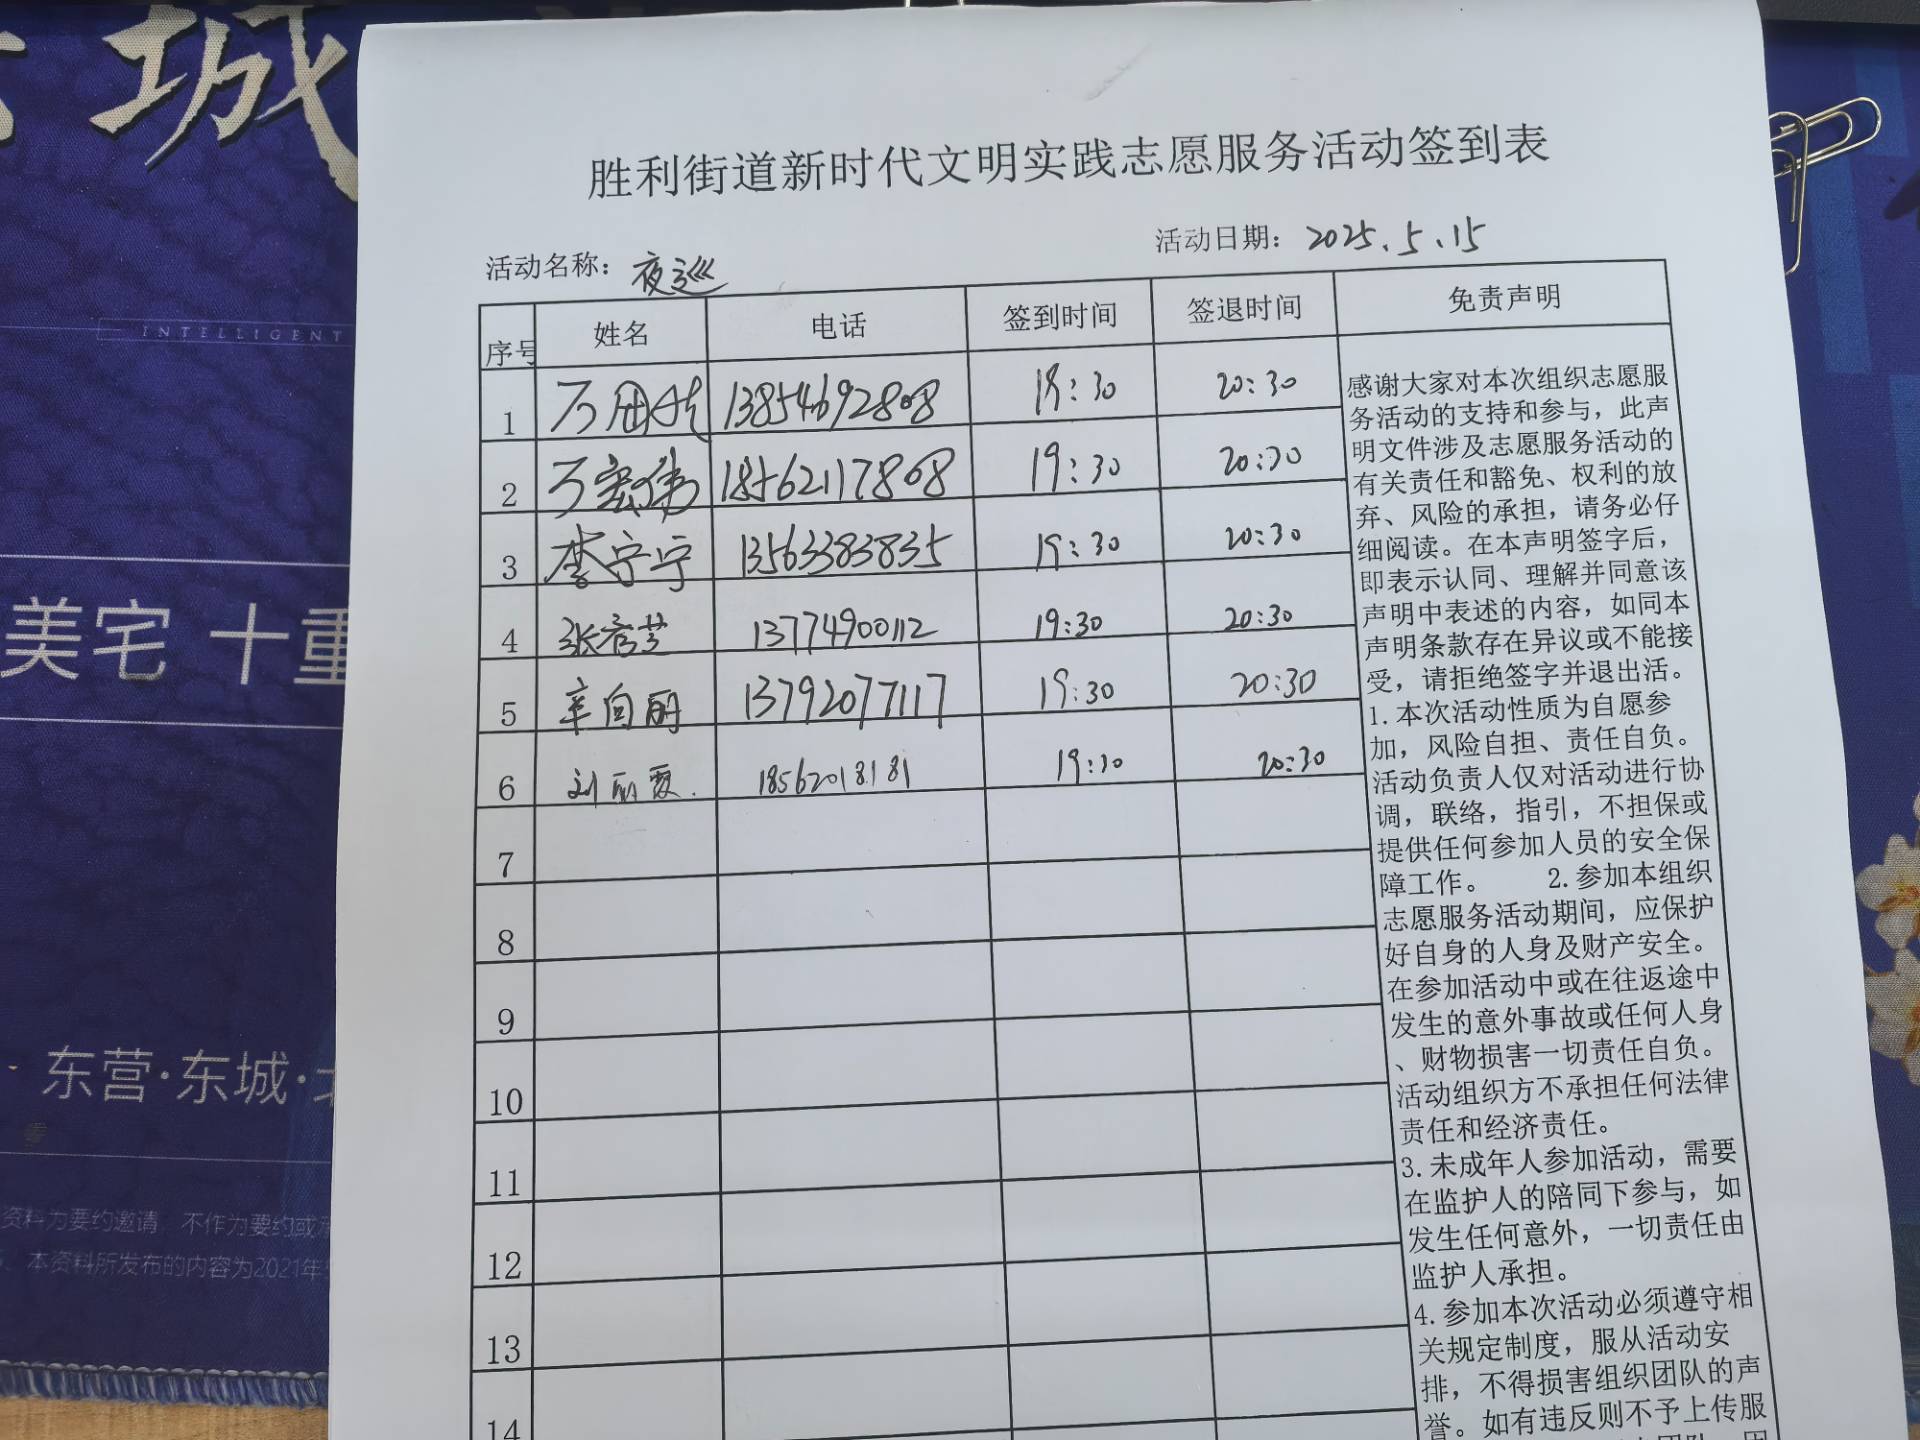 城
INTELLIGENT
美宅 十重
东营·东城·
资料为要约邀请，不作为要约或
本资料所发布的内容为2021年
胜利街道新时代文明实践志愿服务活动签到表
活动名称：夜巡
活动日期：2025.5.15
序号 姓名 电话 签到时间 签退时间 免责声明
1 万国 13854692808 19:30 20:30
2 万宏伟 18562117808 19:30 20:30
3 李宁宁 13563383835 19:30 20:30
4 张秀芝 13774900112 19:30 20:30
5 辛向丽 13792077117 19:30 20:30
6 刘丽霞 18562018181 19:30 20:30
7
8
9
10
11
12
13
14
感谢大家对本次组织志愿服
务活动的支持和参与，此声
明文件涉及志愿服务活动的
有关责任和豁免、权利的放
弃、风险的承担，请务必仔
细阅读。在本声明签字后，
即表示认同、理解并同意该
声明中表述的内容，如同本
声明条款存在异议或不能接
受，请拒绝签字并退出活。
1.本次活动性质为自愿参
加，风险自担、责任自负。
活动负责人仅对活动进行协
调，联络，指引，不担保或
提供任何参加人员的安全保
障工作。 2.参加本组织
志愿服务活动期间，应保护
好自身的人身及财产安全。
在参加活动中或在往返途中
发生的意外事故或任何人身
、财物损害一切责任自负。
活动组织方不承担任何法律
责任和经济责任。
3.未成年人参加活动，需要
在监护人的陪同下参与，如
发生任何意外，一切责任由
监护人承担。
4.参加本次活动必须遵守相
关规定制度，服从活动安
排，不得损害组织团队的声
誉。如有违反则不予上传服